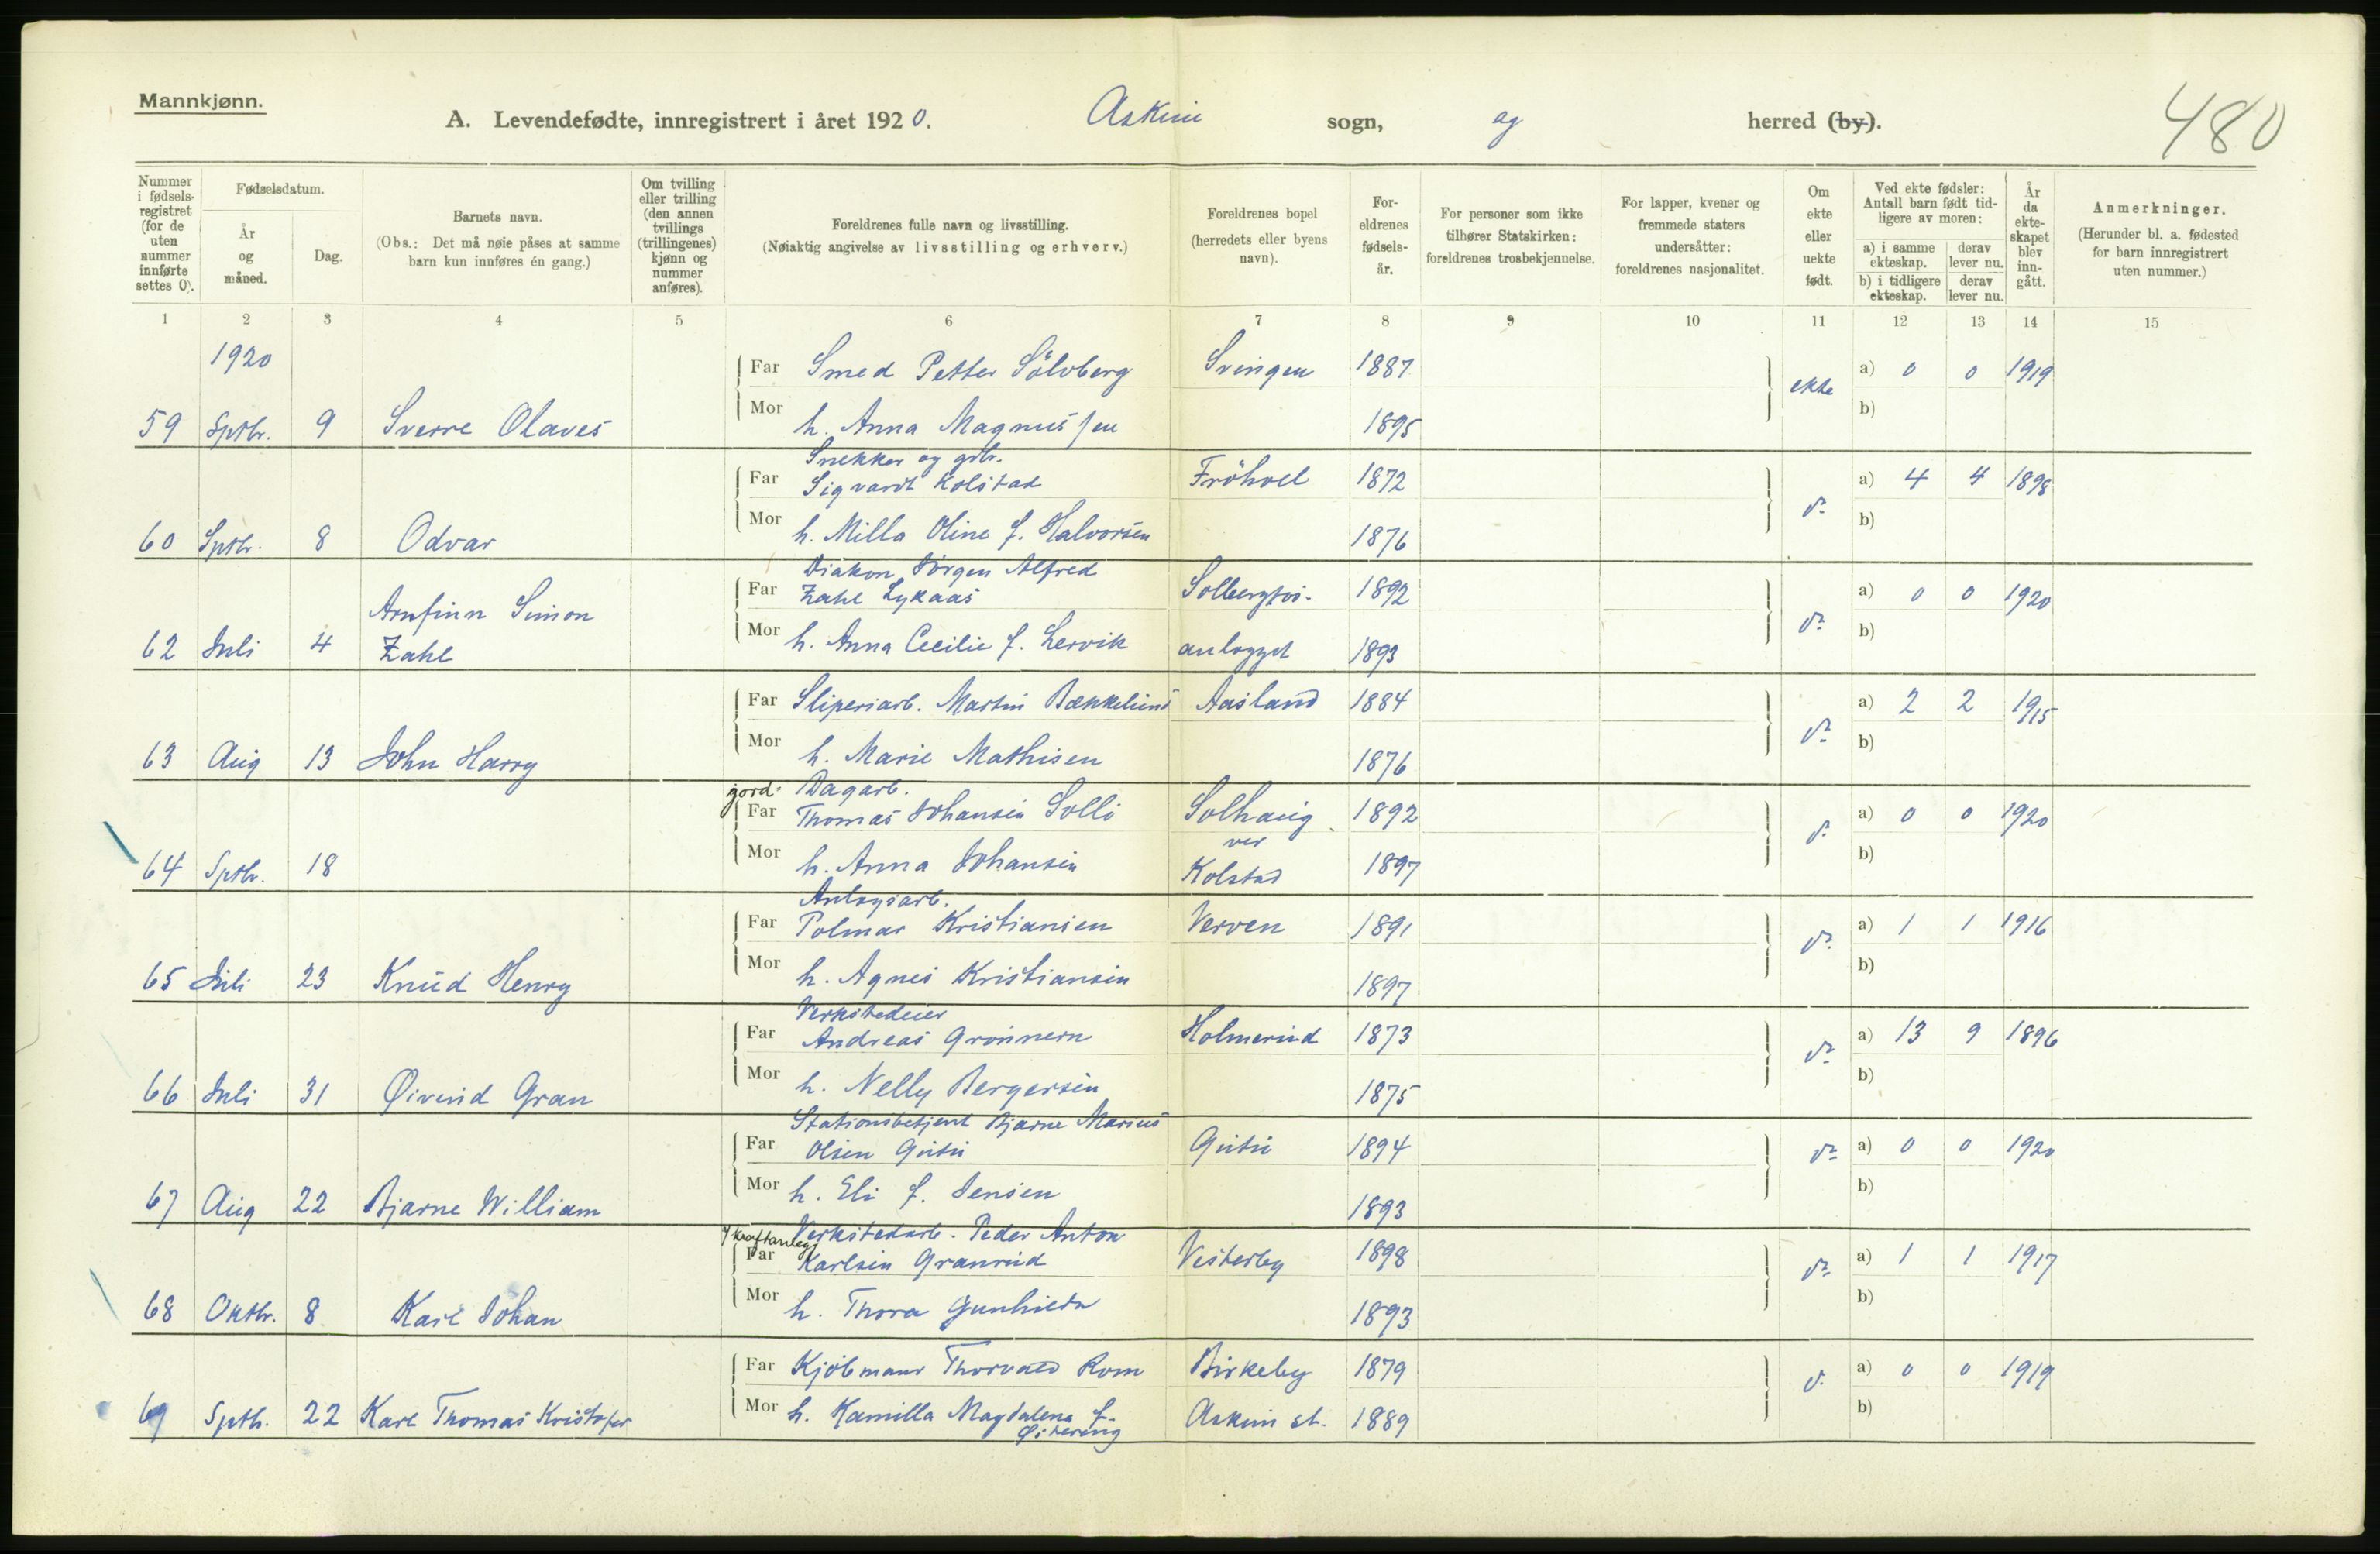 Mannkjønn.
A. Levendefødte, innregistrert i året 1920. Askim sogn, og herred (by).
480
Nummer i fødselsregistret (for de uten nummer innførte settes 0).
Fødselsdatum.
År og måned.
Dag.
Barnets navn.
(Obs.: Det må nøie påses at samme barn kun innføres én gang.)
Om tvilling eller trilling (den annen tvillings (trillingenes) kjønn og nummer anføres).
Foreldrenes fulle navn og livsstilling.
(Nøiaktig angivelse av livsstilling og erhverv.)
Foreldrenes bopel (herredets eller byens navn).
Foreldrenes fødselsår.
For personer som ikke tilhører Statskirken: foreldrenes trosbekjennelse.
For lapper, kvener og fremmede staters undersåtter: foreldrenes nasjonalitet.
Om ekte eller uekte født.
Ved ekte fødsler: Antall barn født tidligere av moren:
a) i samme ekteskap. derav lever nu.
b) i tidligere ekteskap. derav lever nu.
År da ekteskapet blev inngått.
Anmerkninger.
(Herunder bl. a. fødested for barn innregistrert uten nummer.)
1 2 3 4 5 6 7 8 9 10 11 12 13 14 15
1920
Far Smed Petter Sölvberg Svingen 1887 ekte a) 0 0 1919
59 Sptbr. 9 Sverre Olaves Mor h. Anna Magnussen 1895 b)
Snekker og gbr.
Far Sigvardt Kolstad Fröhoel 1872 do a) 4 4 1898
60 Sptbr. 8 Odvar Mor h. Milla Oline f. Halvorsen 1876 b)
Diakon Jörgen Alfred
Far Zahl Lykaas Solbergfos- 1892 do a) 0 0 1920
Arnfinn Simon
62 Juli 4 Zahl Mor h. Anna Cecilie f. Lervik anlegget 1893 b)
Far Sliperiarb. Martin Bækkelund Aasland 1884 do a) 2 2 1915
63 Aug 13 John Harry Mor h. Marie Mathisen 1876 b)
jord- Dagarb.
Far Thomas Johansen Solli Solhaug 1892 do a) 0 0 1920
ver
64 Sptbr. 18 Mor h. Anna Johansen Kolstad 1897 b)
Anlegsarb.
Far Polmar Kristiansen Verven 1891 do a) 1 1 1916
65 Juli 23 Knud Henry Mor h. Agnes Kristiansen 1897 b)
Verkstedeier
Far Andreas Grönnern Holmerud 1873 do a) 13 9 1896
66 Juli 31 Øivind Gran Mor h. Nelly Bergersen 1875 b)
Stationsbetjent Bjarne Marius
Far Olsen Gutu Gutu 1894 do a) 0 0 1920
67 Aug 22 Bjarne William Mor h. Eli f. Jensen 1893 b)
/kraftanlegg Verkstedarb. Peder Anton
Far Karlsen Granrud Vesterby 1898 do a) 1 1 1917
68 Oktbr. 8 Karl Johan Mor h. Thora Gunhilda 1893 b)
Far Kjöbmann Thorvald Rom Birkeby 1879 do a) 0 0 1919
69 Sptb. 22 Karl Thomas Kristofer Mor h. Kamilla Magdalena f. Askim st. 1889 b)